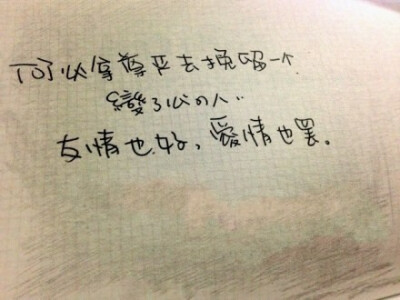 何必拿尊严去挽留一个
變了心の人..
友情也好，愛情也罢。